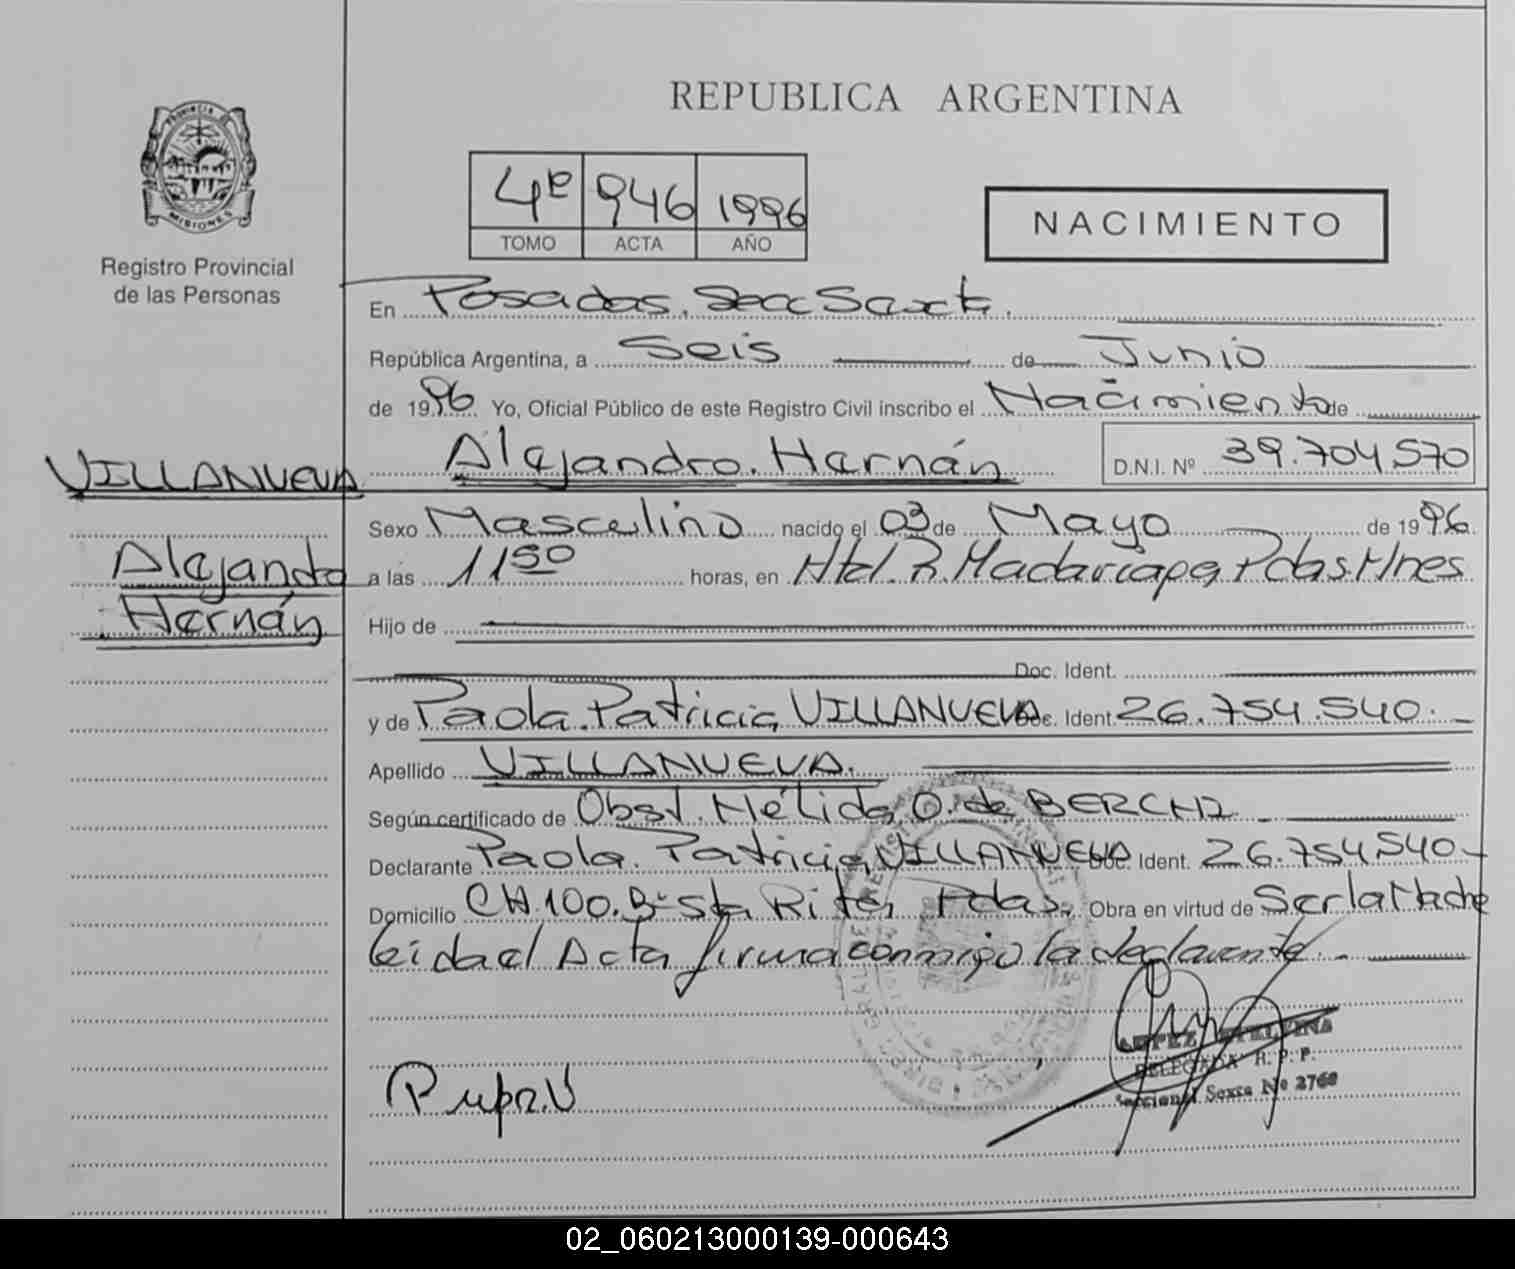 REPUBLICA ARGENTINA
PROVINCIA DE
MISIONES
Registro Provincial
de las Personas
4º 946 1996
TOMO ACTA AÑO
NACIMIENTO
En Posadas, Secc Sexta.
República Argentina, a Seis de Junio
de 1996 Yo, Oficial Público de este Registro Civil inscribo el Nacimiento de
VILLANUEVA Alejandro Hernán D.N.I. Nº 39.704.570
Sexo Masculino nacido el 03 de Mayo de 1996
Alejandro a las 11 50 horas, en Htal. R. Madariaga Pdas. Mnes
Hernán Hijo de
Doc. Ident.
y de Paola Patricia VILLANUEVA Doc. Ident. 26.754.540.
Apellido VILLANUEVA.
Según certificado de Obst. Nélida O. de BERCHI
Declarante Paola Patricia VILLANUEVA Doc. Ident. 26.754.540
Domicilio CH 100. Bº Sta Rita Pdas. Obra en virtud de Ser la Madre
leida el Acta firma conmigo la declarante.
LOPEZ ETELVINA
DELEGADA R. P. P.
Seccional Sexta Nº 2760
02_060213000139-000643